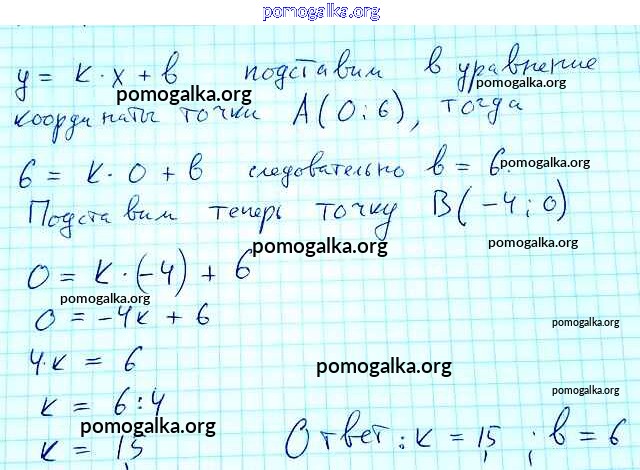 pomogalka.org
y = k·x + b подставим в уравнение
pomogalka.org
pomogalka.org
координаты точки A(0;6), тогда
6 = k·0 + b следовательно b = 6.
pomogalka.org
Подставим теперь точку B(-4;0)
pomogalka.org
pomogalka.org
0 = k·(-4) + 6
pomogalka.org
0 = -4k + 6
pomogalka.org
4·k = 6
pomogalka.org
k = 6:4
pomogalka.org
pomogalka.org
k = 1,5 Ответ: k = 1,5 ; b = 6